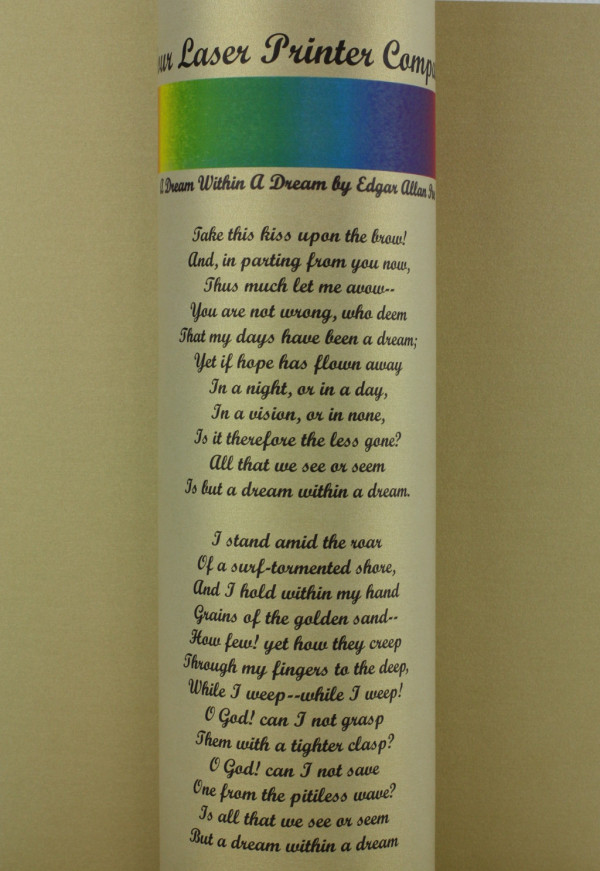 Laser Printer
A Dream Within A Dream by Edgar Allan
Take this kiss upon the brow!
And, in parting from you now,
Thus much let me avow--
You are not wrong, who deem
That my days have been a dream;
Yet if hope has flown away
In a night, or in a day,
In a vision, or in none,
Is it therefore the less gone?
All that we see or seem
Is but a dream within a dream.
I stand amid the roar
Of a surf-tormented shore,
And I hold within my hand
Grains of the golden sand--
How few! yet how they creep
Through my fingers to the deep,
While I weep--while I weep!
O God! can I not grasp
Them with a tighter clasp?
O God! can I not save
One from the pitiless wave?
Is all that we see or seem
But a dream within a dream